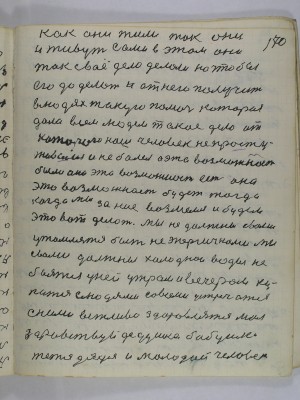 170
как они жили так они
и живут сами в этом они
так своё дело делали но чтобы
его до делат и от него получит
в людях такую помоч которая
дала всем людям такое дело от
которого наш человек не просту-
жался и не болел а эта возможност
была она эта возможност ест она
это возможност будет тогда
когда мы за них возмемся и будем
это вот делат. мы не должны своими
утомлятся быт не жирными мы
своими должны холодной воды не
боятся у ней утрам и вечерам ку-
патся с людями совсеми стричатся
сними вежливо здоровлятся мол
здравствуй дедушка бабушка
тетя дядя и молодой человек